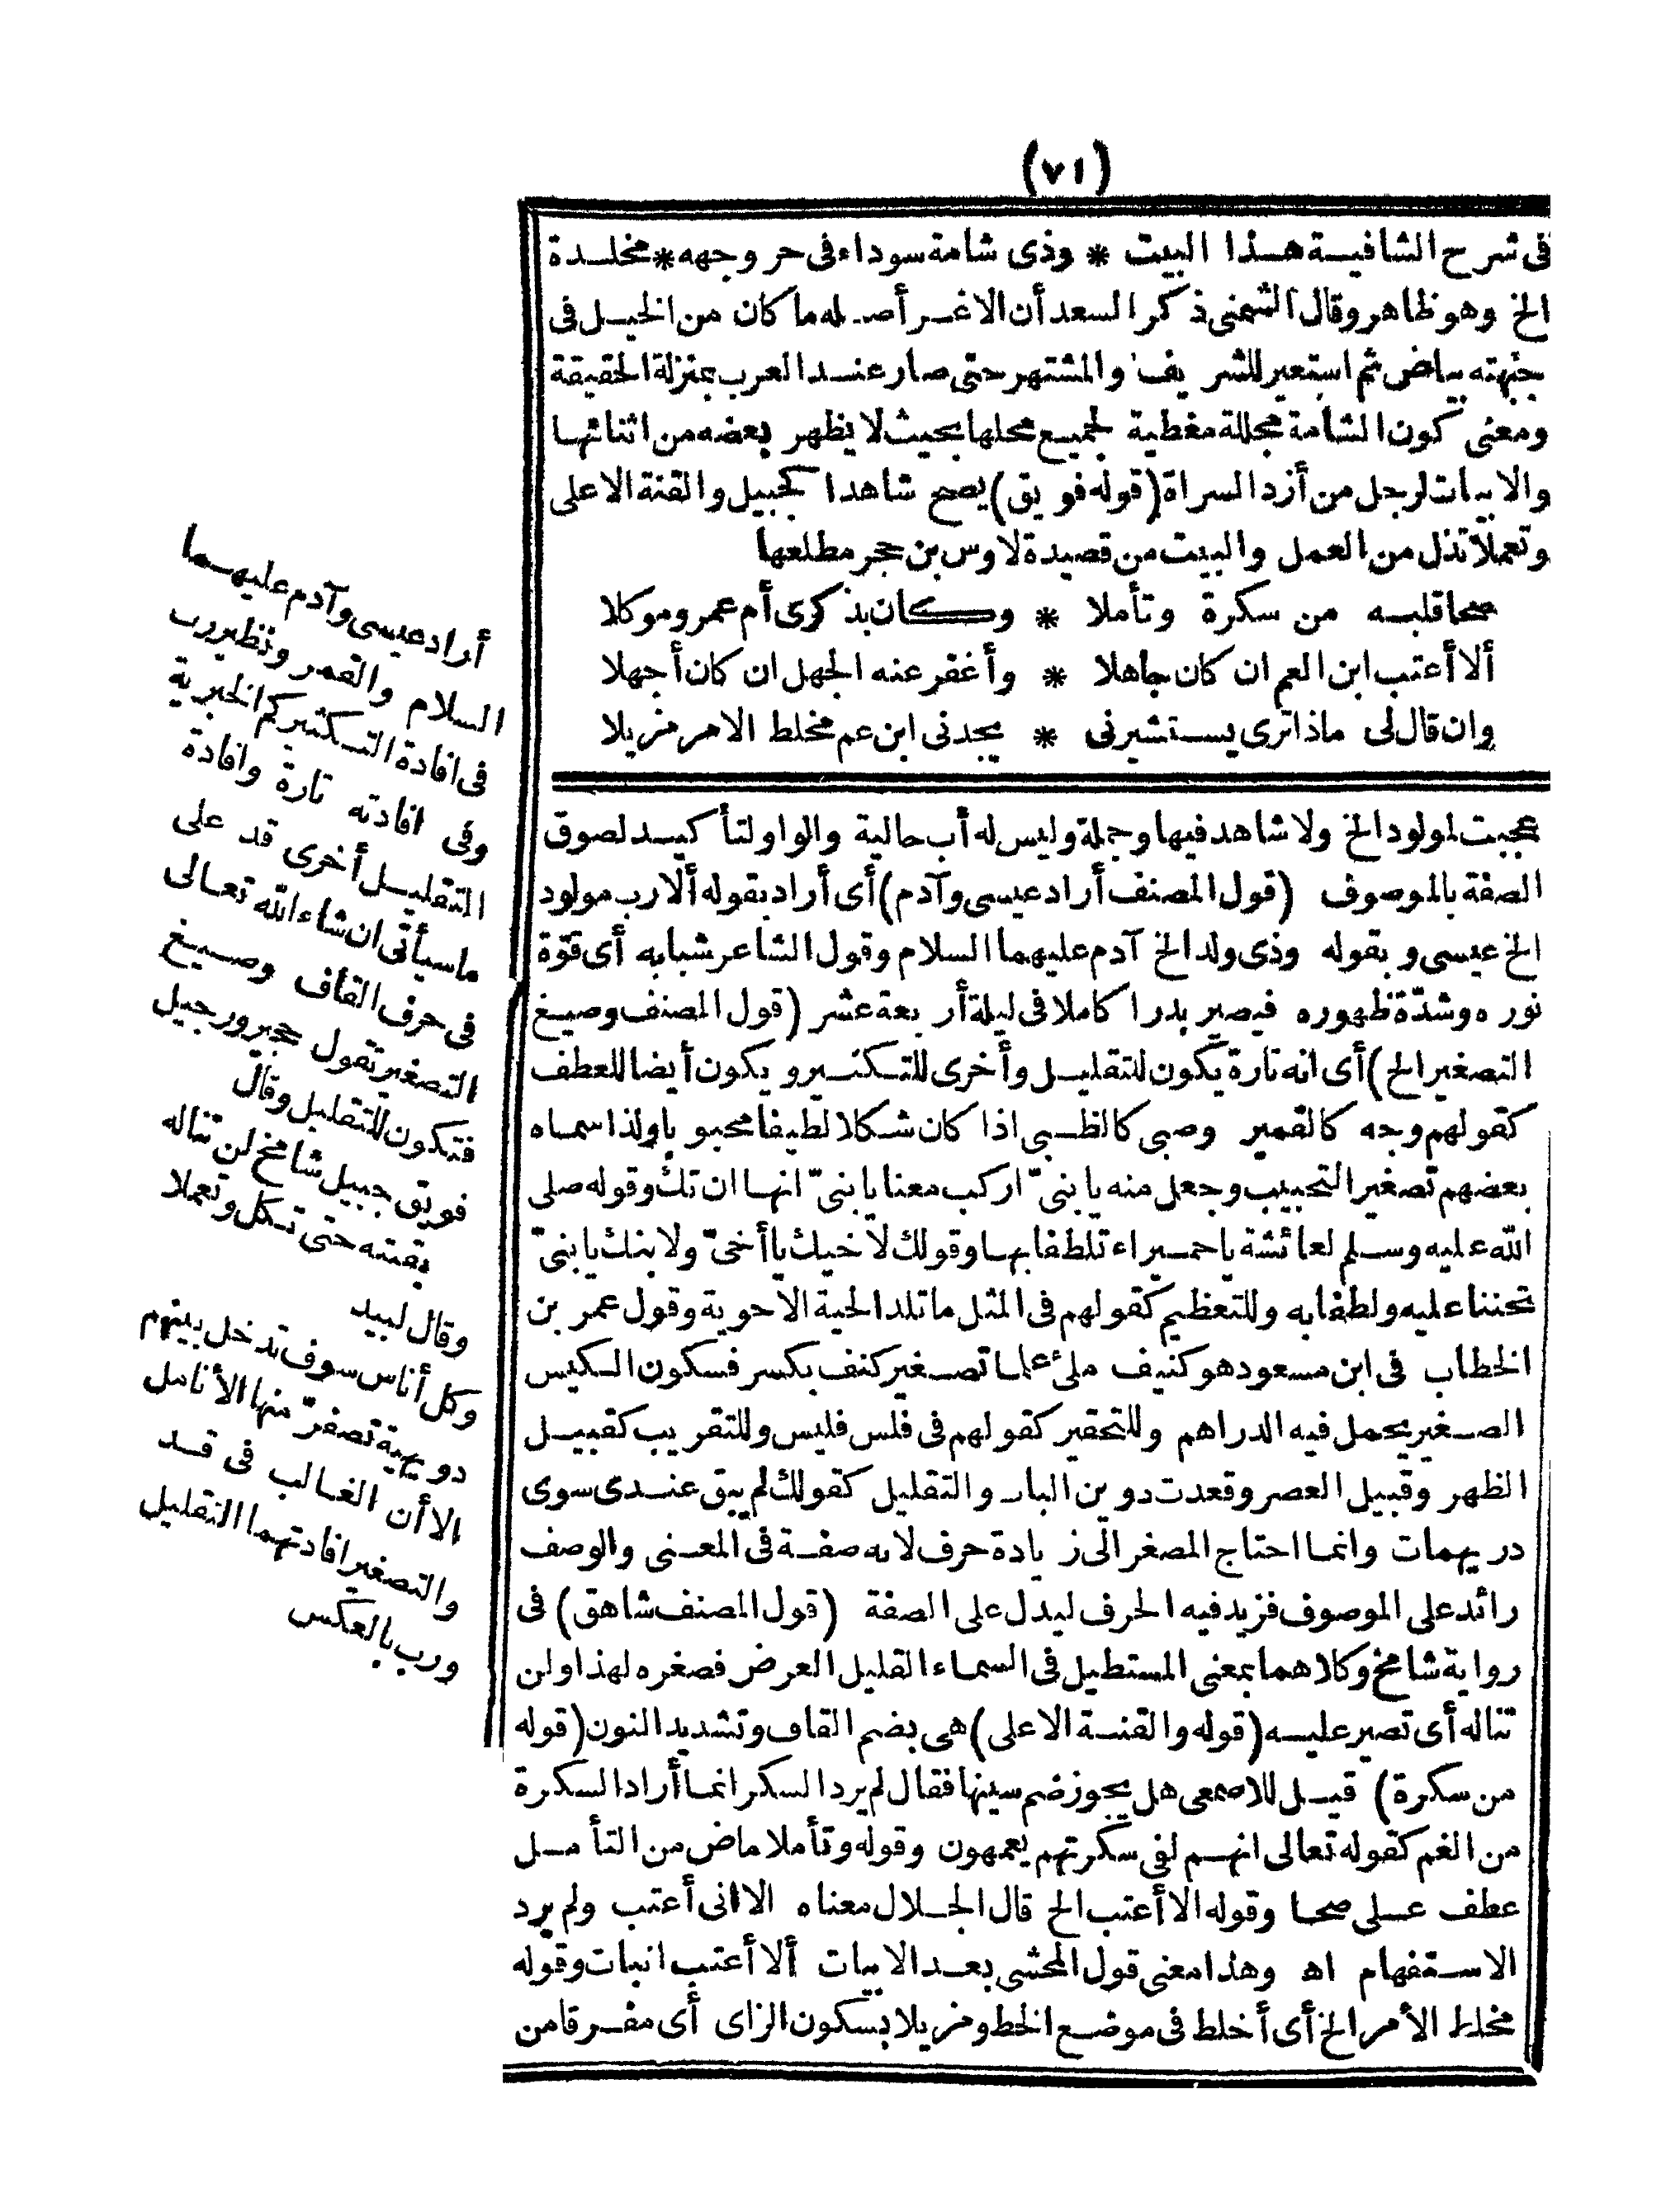 (٧١)
فى شرح الشافيسة هذا البيت * وذى شامة سوداء فى حر وجهه * مخلدة
الخ وهو ظاهر وقال الشمنى ذكر السعد أن الاغر أصله ما كان من الخيل فى
جبهته بياض ثم استعير للشريف والمشتهر حتى صار عند العرب بمنزلة الحقيقة
ومعنى كون الشامة مجللة مغطية لجميع محلها بحيث لا يظهر بعضه من اثنائها
والابيات لرجل من أزد السراة (قوله فويق) يصح شاهدا لجبيل والقنة الاعلى
وتعملا تذل من العمل والبيت من قصيدة لاوس بن حجر مطلعها
صحا قلبه من سكرة وتأملا * وكان بذكرى أم عمرو موكلا
ألا أعتب ابن العم ان كان جاهلا * وأغفر عنه الجهل ان كان أجهلا
وان قال لى ماذا ترى يستشيرنى * يجدنى ابن عم مخلط الامر مزيلا
عجبت لمولود الخ ولا شاهد فيها وجملة وليس له أب حالية والواو لتأكيد لصوق
الصفة بالموصوف (قول المصنف أراد عيسى وآدم) أى أراد بقوله ألا رب مولود
الخ عيسى وبقوله وذى ولد الخ آدم عليهما السلام وقول الشاعر شبابه أى قوّة
نوره وشدّة ظهوره فيصير بدرا كاملا فى ليلة أربعة عشر (قول المصنف وصيغ
التصغير الخ) أى انه تارة يكون للتقليل وأخرى للتكثير ويكون أيضا للعطف
كقولهم وجه كالقمير وصبى كالظبى اذا كان شكلا لطيفا محبوبا ولذا سماه
بعضهم تصغير التحبيب وجعل منه يا بنىّ اركب معنا يا بنىّ انها ان تك وقوله صلى
الله عليه وسلم لعائشة يا حميراء تلطفا بها وقولك لاخيك يا أخىّ ولابنك يا بنىّ
تحننا عليه ولطفا به وللتعظيم كقولهم فى المثل ما تلد الحية الا حوية وقول عمر بن
الخطاب فى ابن مسعود هو كنيف ملئ علما تصغير كنف بكسر فسكون الكيس
الصغير يحمل فيه الدراهم وللتحقير كقولهم فى فلس فليس وللتقريب كقبيل
الظهر وقبيل العصر وقعدت دوين الباب والتقليل كقولك لم يبق عندى سوى
دريهمات وانما احتاج المصغر الى زيادة حرف لانه صفة فى المعنى والوصف
زائد على الموصوف فزيد فيه الحرف ليدل على الصفة (قول المصنف شاهق) فى
رواية شامخ وكلاهما بمعنى المستطيل فى السماء القليل العرض فصغره لهذا ولن
تناله أى تصير عليه (قوله والقنسة الاعلى) هى بضم القاف وتشديد النون (قوله
من سكرة) قيل للاصمعى هل يجوز ضم سينها فقال لم يرد السكر انما أراد السكرة
من الغم كقوله تعالى انهم لفى سكرتهم يعمهون وقوله وتأملا ماض من التأمل
عطف على صحا وقوله الا أعتب الخ قال الجلال معناه الا انى أعتب ولم يرد
الاستفهام اه وهذا معنى قول المحشى بعد الابيات ألا أعتب اثبات وقوله
مخلط الأمر الخ أى أخلط فى موضع الخلط ومزيلا بسكون الزاى أى مفرقا من
أراد عيسى وآدم عليهما
السلام والقمر ونظير رب
فى افادة التكثير كم الخبرية
وفى افادته تارة وافادة
التقليل أخرى قد على
ما سيأتى ان شاء الله تعالى
فى حرف القاف وصيغ
التصغير تقول حجير ورجيل
فتكون للتقليل وقال
فويق جبيل شامخ لن تناله
بقنته حتى تكل وتعملا
وقال لبيد
وكل أناس سوف تدخل بينهم
دويهية تصفرّ منها الأنامل
الا أن الغالب فى قد
والتصغير افادتهما التقليل
ورب بالعكس